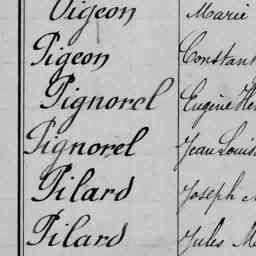 Pigeon Marie
Pigeon Constant
Pignorel Eugène
Pignorel Jean Louis
Pilard Joseph
Pilard Jules